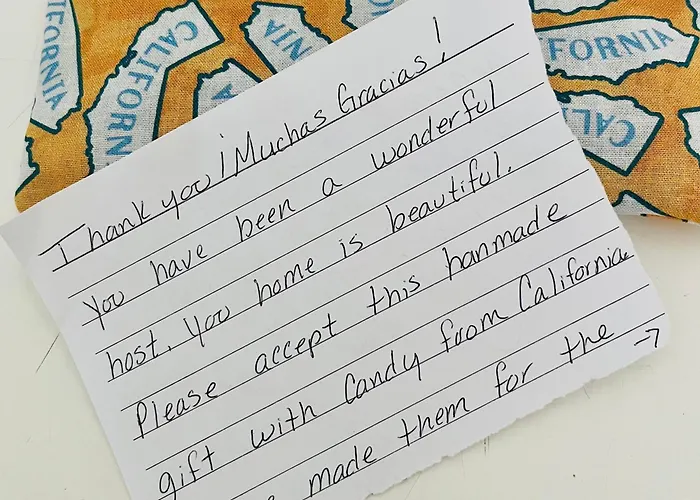 CALIFORNIA
CALIFORN
FORNIA
Thank you ¡Muchas Gracias!
You have been a wonderful
host. You home is beautiful.
Please accept this hanmade
gift with Candy from California.
made them for the